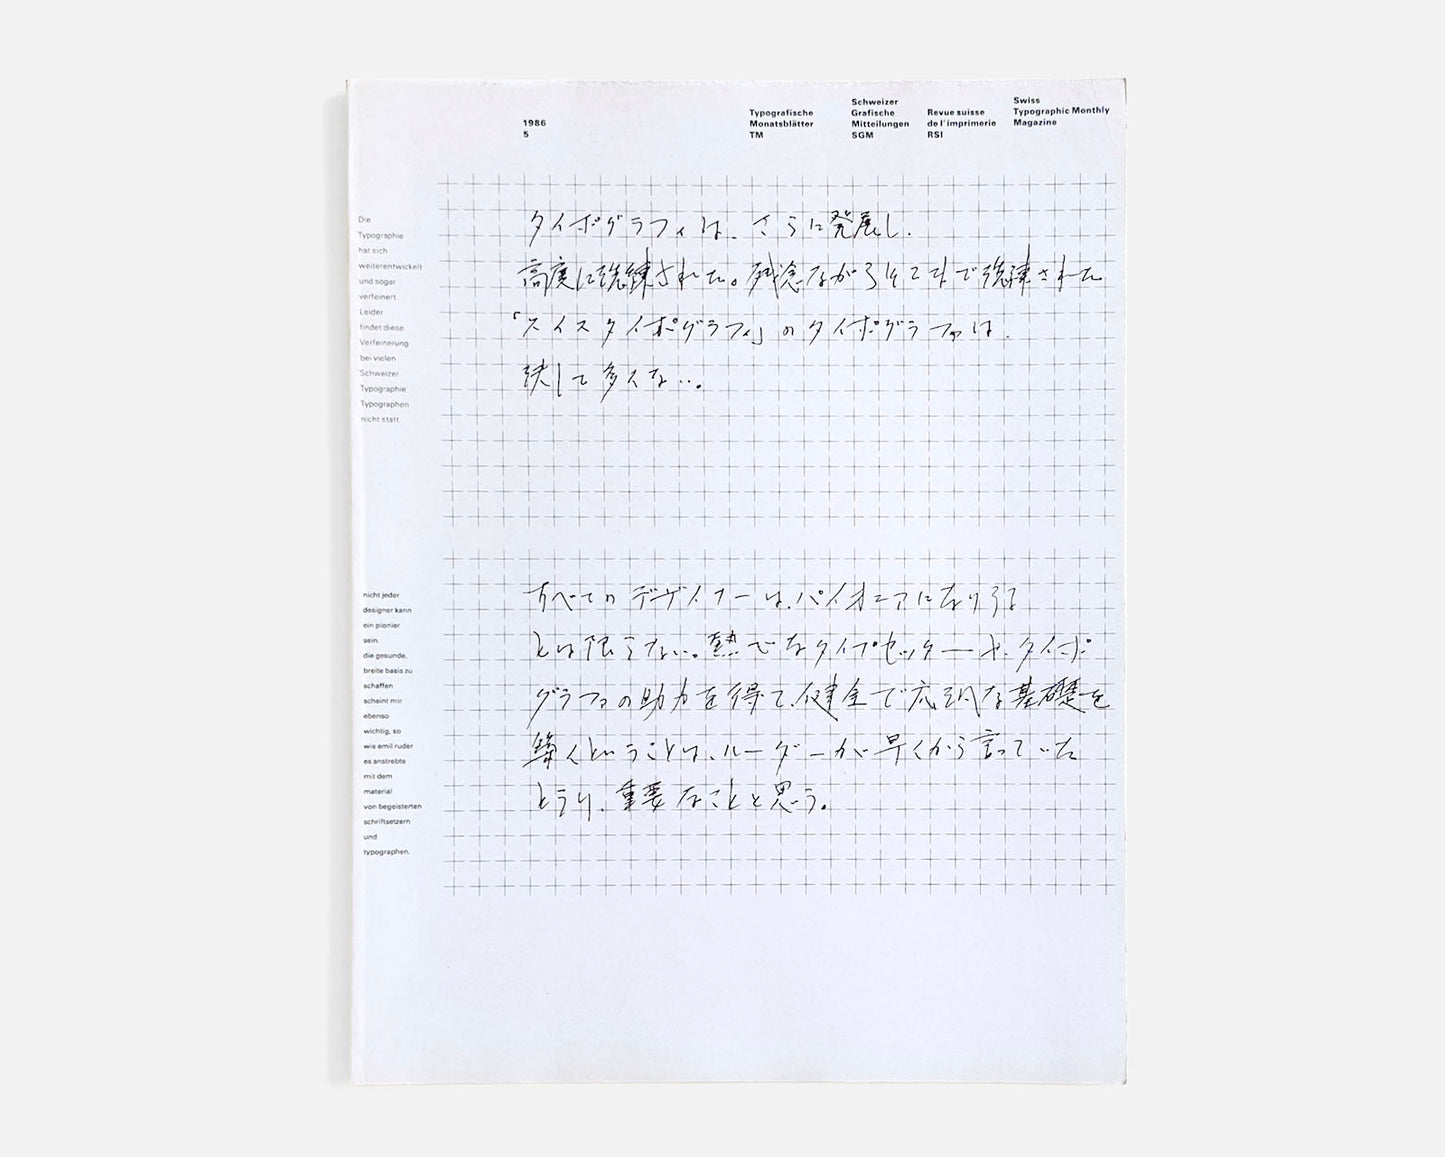 1986
5
Typografische
Monatsblätter
TM
Schweizer
Grafische
Mitteilungen
SGM
Revue suisse
de l'imprimerie
RSI
Swiss
Typographic Monthly
Magazine
Die
Typographie
hat sich
weiterentwickelt
und sogar
verfeinert.
Leider
findet diese
Verfeinerung
bei vielen
Schweizer
Typographie
Typographen
nicht statt.
タイポグラフィは、さらに発展し、
高度に洗練された。残念ながらそこまで洗練された
「スイスタイポグラフィ」のタイポグラファは、
決して多くない。
nicht jeder
designer kann
ein pionier
sein.
die gesunde,
breite basis zu
schaffen
scheint mir
ebenso
wichtig, so
wie emil ruder
es anstrebte
mit dem
material
von begeisterten
schriftsetzern
und
typographen.
すべてのデザイナーは、パイオニアになりうる
とは限らない。熱心なタイプセッターや、タイポ
グラファの助力を得て、健全で広汎な基礎を
築くということは、ルーダーが早くから言っていた
とうり、重要なことと思う。